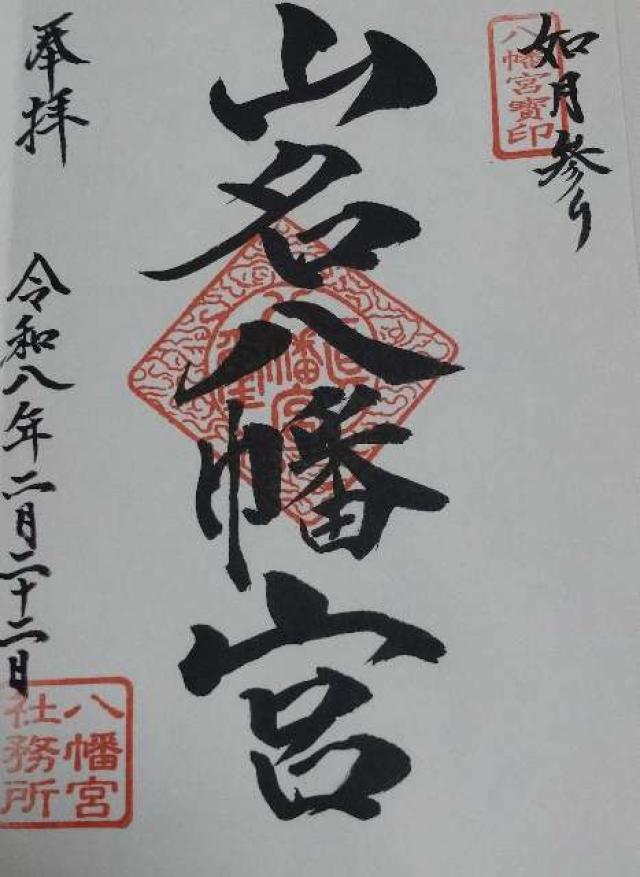 如月参り
八幡宮寶印
山名八幡宮
奉拝
令和八年二月二十二日
八幡宮
社務所